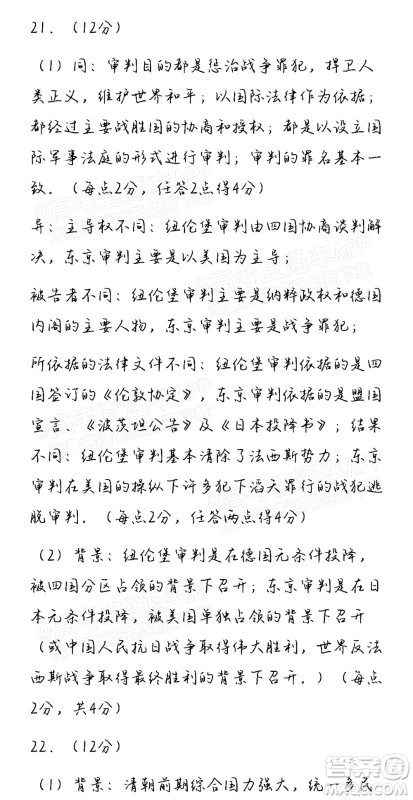 21．（12分）
（1）同：审判目的都是惩治战争罪犯，捍卫人
类正义，维护世界和平；以国际法律作为依据；
都经过主要战胜国的协商和授权；都是以设立国
际军事法庭的形式进行审判；审判的罪名基本一
致．（每点2分，任答2点得4分）
异：主导权不同：纽伦堡审判由四国协商谈判解
决，东京审判主要是以美国为主导；
被告者不同：纽伦堡审判主要是纳粹政权和德国
内阁的主要人物，东京审判主要是战争罪犯；
所依据的法律文件不同：纽伦堡审判依据的是四
国签订的《伦敦协定》，东京审判依据的是盟国
宣言、《波茨坦公告》及《日本投降书》；结果
不同：纽伦堡审判基本清除了法西斯势力；东京
审判在美国的操纵下许多犯下滔天罪行的战犯逃
脱审判．（每点2分，任答两点得4分）
（2）背景：纽伦堡审判是在德国无条件投降，
被四国分区占领的背景下召开；东京审判是在日
本无条件投降，被美国单独占领的背景下召开
（或中国人民抗日战争取得伟大胜利，世界反法
西斯战争取得最终胜利的背景下召开．）（每点
2分，共4分）
22．（12分）
（1）背景：清朝前期综合国力强大，统一多民
答案圈